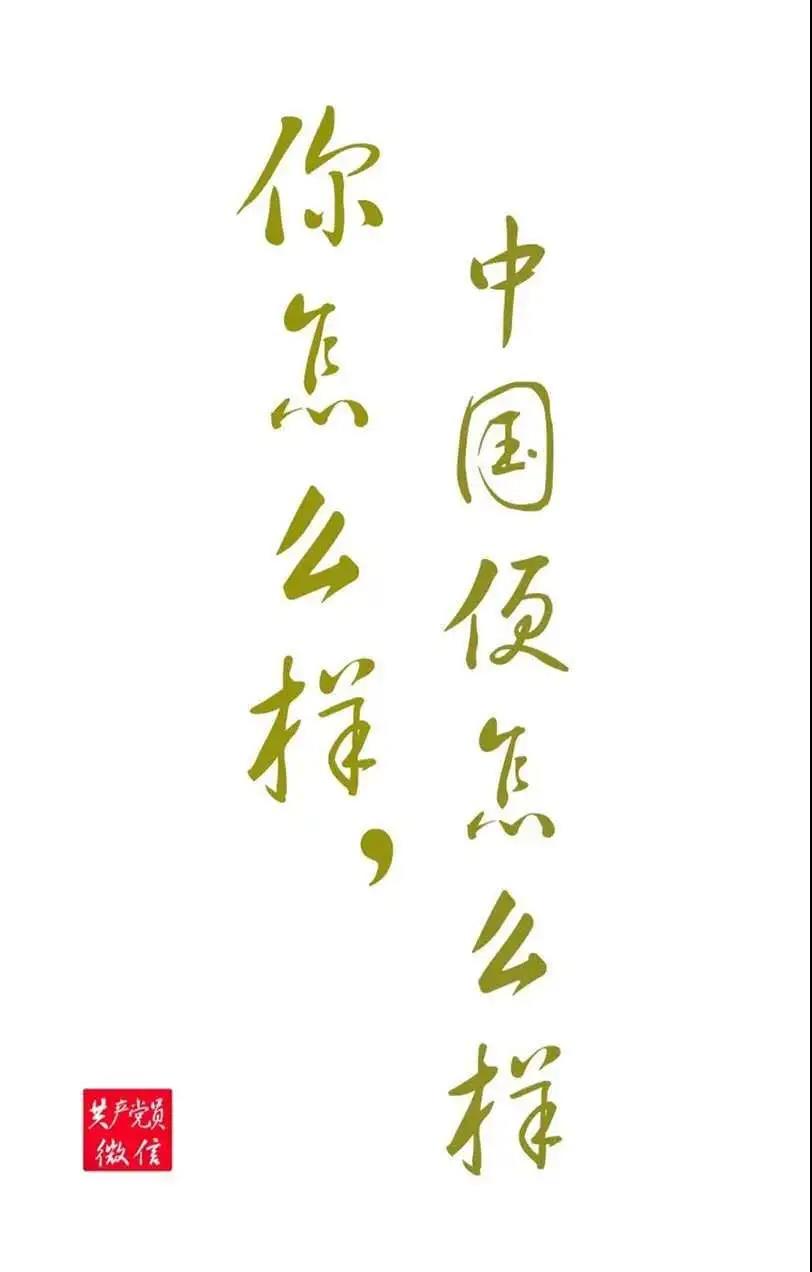 你怎么样，
中国便怎么样
共产党员
微信